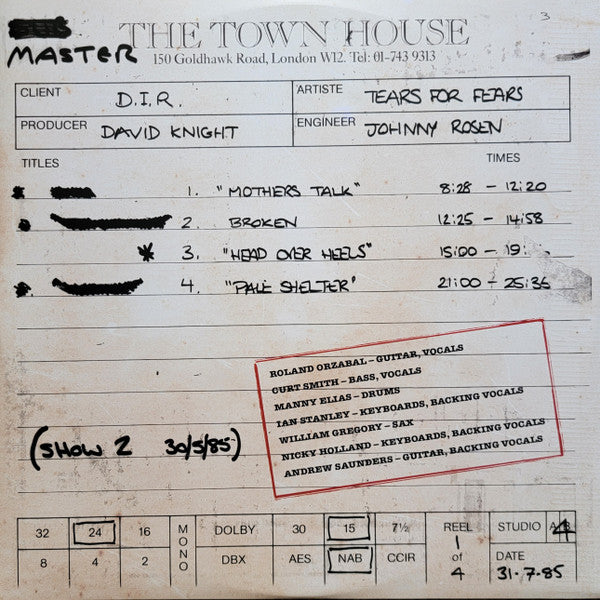 3
THE TOWN HOUSE
MASTER
150 Goldhawk Road, London W12. Tel: 01-743 9313
CLIENT D.I.R. ARTISTE TEARS FOR FEARS
PRODUCER DAVID KNIGHT ENGINEER JOHNNY ROSEN
TITLES TIMES
1. "MOTHERS TALK" 8:28 - 12:20
2. BROKEN 12:25 - 14:58
* 3. "HEAD OVER HEELS" 15:00 - 19:
4. "PALE SHELTER" 21:00 - 25:36
ROLAND ORZABAL – GUITAR, VOCALS
CURT SMITH – BASS, VOCALS
MANNY ELIAS – DRUMS
IAN STANLEY – KEYBOARDS, BACKING VOCALS
WILLIAM GREGORY – SAX
NICKY HOLLAND – KEYBOARDS, BACKING VOCALS
ANDREW SAUNDERS – GUITAR, BACKING VOCALS
(SHOW 2 30/5/85)
32 24 16 MONO DOLBY 30 15 7½ REEL 1 of 4 STUDIO 4
8 4 2 DBX AES NAB CCIR DATE 31·7·85